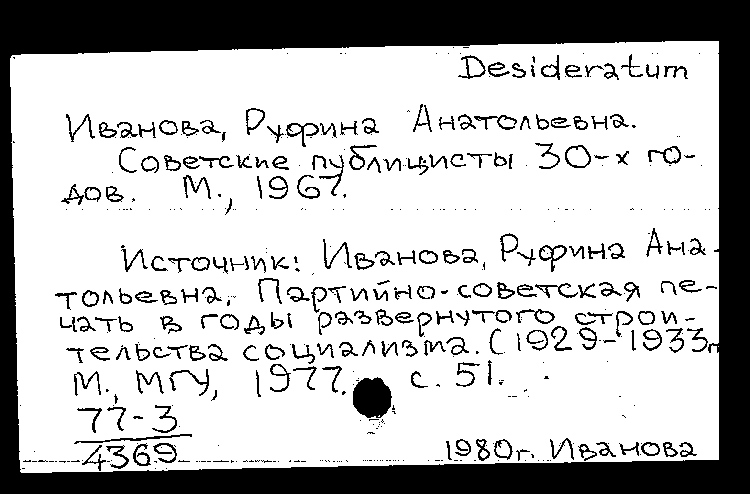 Desideratum
Иванова, Руфина Анатольевна.
Советские публицисты 30-х го-
дов. М., 1967.
Источник: Иванова, Руфина Ана-
тольевна, Партийно-советская пе-
чать в годы развернутого строи-
тельства социализма. (1929-1933г
М., МГУ, 1977. с. 51.
77-3
4369
1980г. Иванова